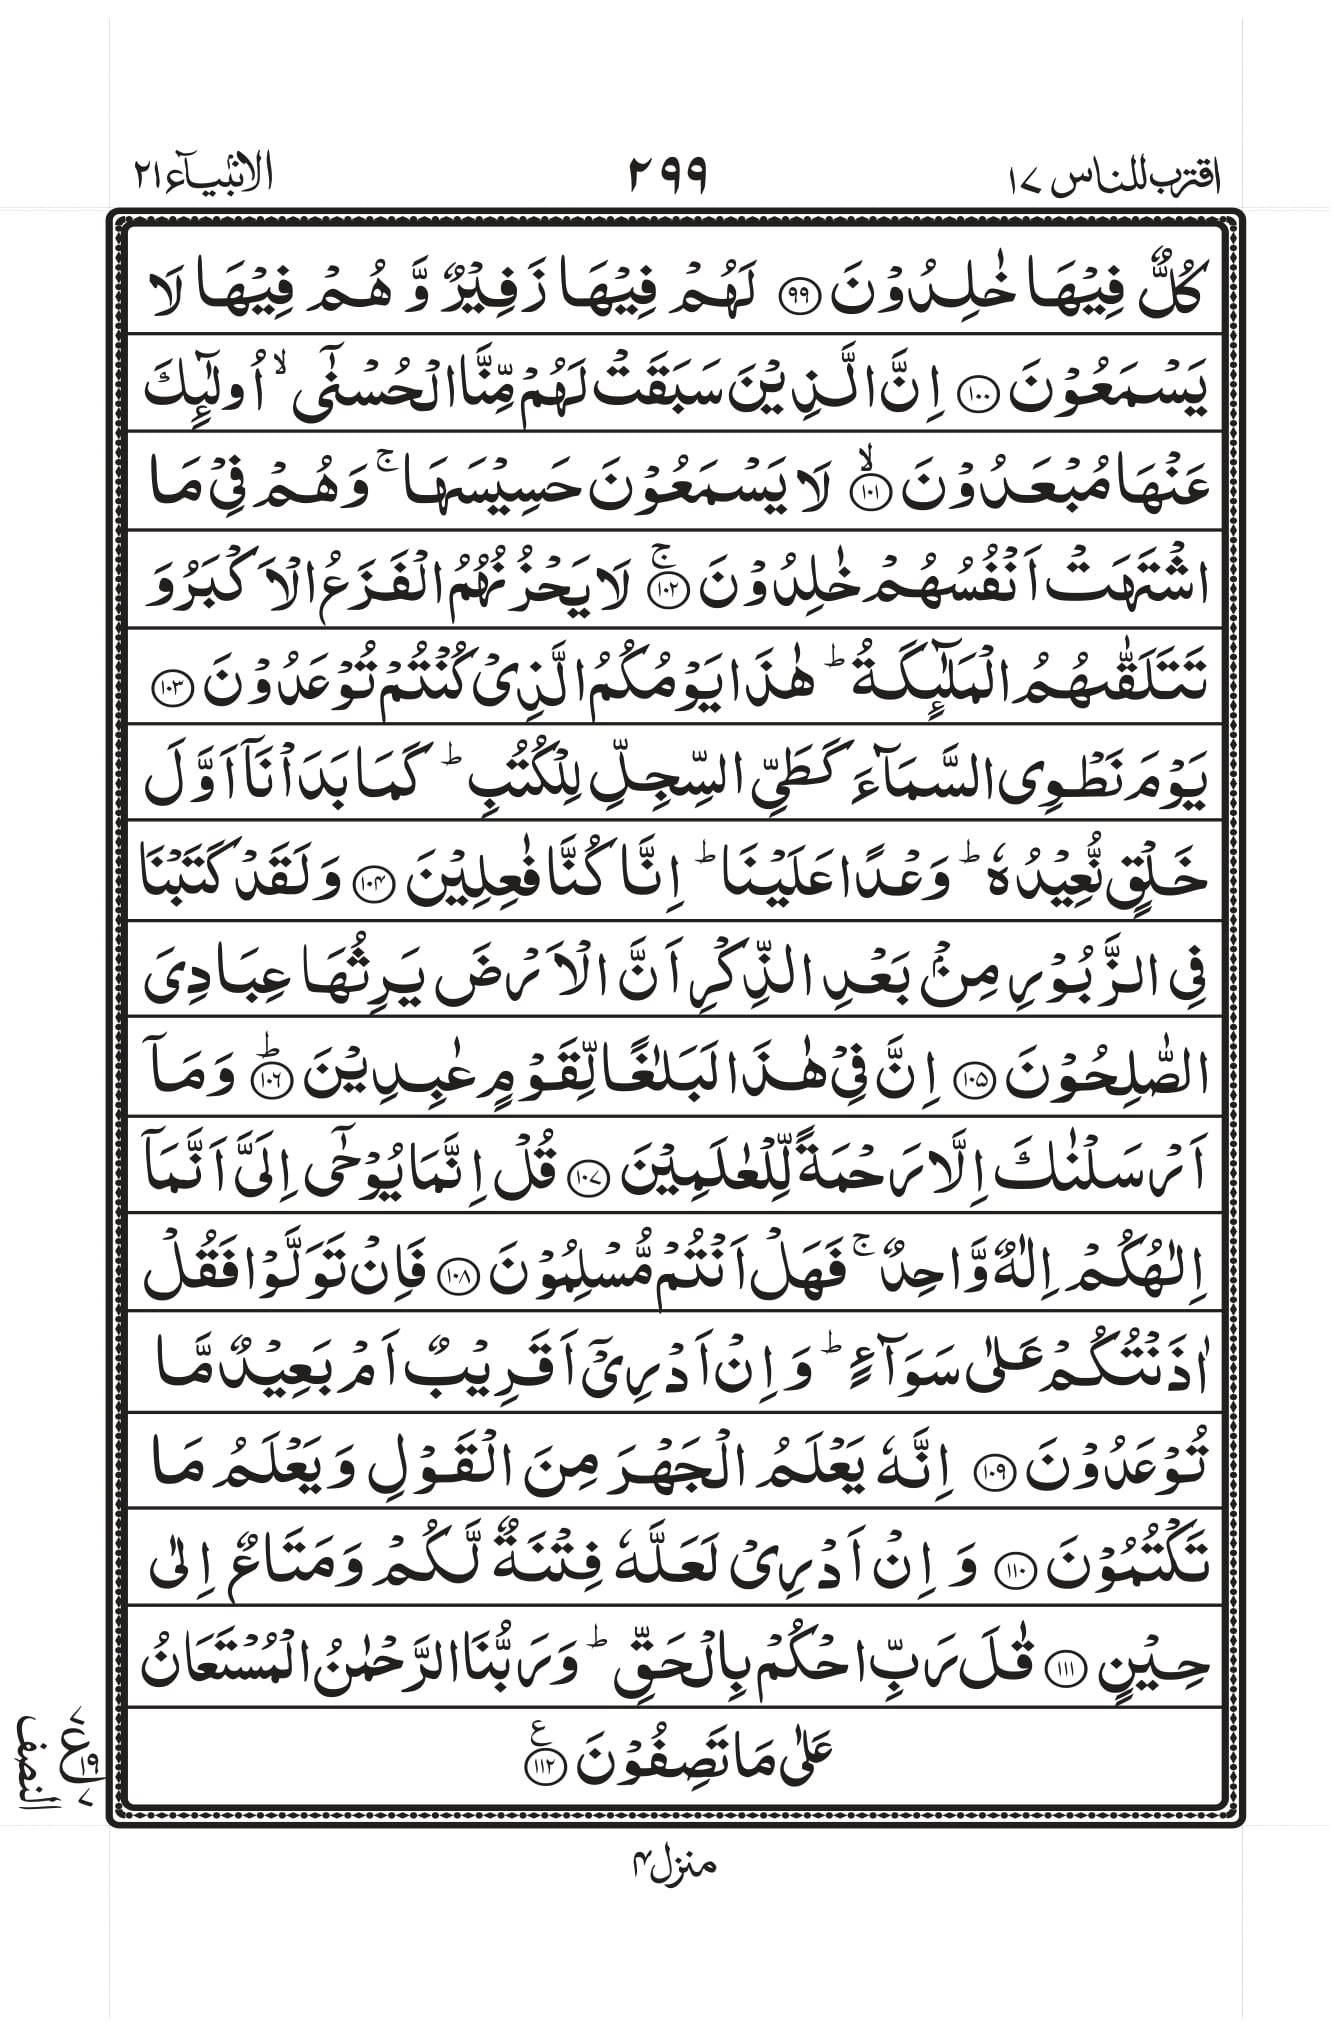 اقترب للناس ١٧
٢٩٩
الانبيآء ٢١
كُلٌّ فِيْهَا خٰلِدُوْنَ ﴿٩٩﴾ لَهُمْ فِيْهَا زَفِيْرٌ وَّ هُمْ فِيْهَا لَا
يَسْمَعُوْنَ ﴿١٠٠﴾ اِنَّ الَّذِيْنَ سَبَقَتْ لَهُمْ مِّنَّا الْحُسْنٰٓى ۙ اُولٰٓئِكَ
عَنْهَا مُبْعَدُوْنَ ﴿١٠١﴾ۙ لَا يَسْمَعُوْنَ حَسِيْسَهَا ۚ وَ هُمْ فِيْ مَا
اشْتَهَتْ اَنْفُسُهُمْ خٰلِدُوْنَ ﴿١٠٢﴾ۚ لَا يَحْزُنُهُمُ الْفَزَعُ الْاَكْبَرُ وَ
تَتَلَقّٰىهُمُ الْمَلٰٓئِكَةُ ؕ هٰذَا يَوْمُكُمُ الَّذِيْ كُنْتُمْ تُوْعَدُوْنَ ﴿١٠٣﴾
يَوْمَ نَطْوِي السَّمَآءَ كَطَيِّ السِّجِلِّ لِلْكُتُبِ ؕ كَمَا بَدَاْنَاۤ اَوَّلَ
خَلْقٍ نُّعِيْدُهٗ ؕ وَعْدًا عَلَيْنَا ؕ اِنَّا كُنَّا فٰعِلِيْنَ ﴿١٠٤﴾ وَ لَقَدْ كَتَبْنَا
فِي الزَّبُوْرِ مِنْۢ بَعْدِ الذِّكْرِ اَنَّ الْاَرْضَ يَرِثُهَا عِبَادِيَ
الصّٰلِحُوْنَ ﴿١٠٥﴾ اِنَّ فِيْ هٰذَا لَبَلٰغًا لِّقَوْمٍ عٰبِدِيْنَ ﴿١٠٦﴾ؕ وَ مَاۤ
اَرْسَلْنٰكَ اِلَّا رَحْمَةً لِّلْعٰلَمِيْنَ ﴿١٠٧﴾ قُلْ اِنَّمَا يُوْحٰٓى اِلَيَّ اَنَّمَاۤ
اِلٰهُكُمْ اِلٰهٌ وَّاحِدٌ ۚ فَهَلْ اَنْتُمْ مُّسْلِمُوْنَ ﴿١٠٨﴾ فَاِنْ تَوَلَّوْا فَقُلْ
اٰذَنْتُكُمْ عَلٰى سَوَآءٍ ؕ وَ اِنْ اَدْرِيْۤ اَقَرِيْبٌ اَمْ بَعِيْدٌ مَّا
تُوْعَدُوْنَ ﴿١٠٩﴾ اِنَّهٗ يَعْلَمُ الْجَهْرَ مِنَ الْقَوْلِ وَ يَعْلَمُ مَا
تَكْتُمُوْنَ ﴿١١٠﴾ وَ اِنْ اَدْرِيْ لَعَلَّهٗ فِتْنَةٌ لَّكُمْ وَ مَتَاعٌ اِلٰى
حِيْنٍ ﴿١١١﴾ قٰلَ رَبِّ احْكُمْ بِالْحَقِّ ؕ وَ رَبُّنَا الرَّحْمٰنُ الْمُسْتَعَانُ
عَلٰى مَا تَصِفُوْنَ ﴿١١٢﴾ ع
٧ ع ١٩ ٧
النصف
منزل ۴